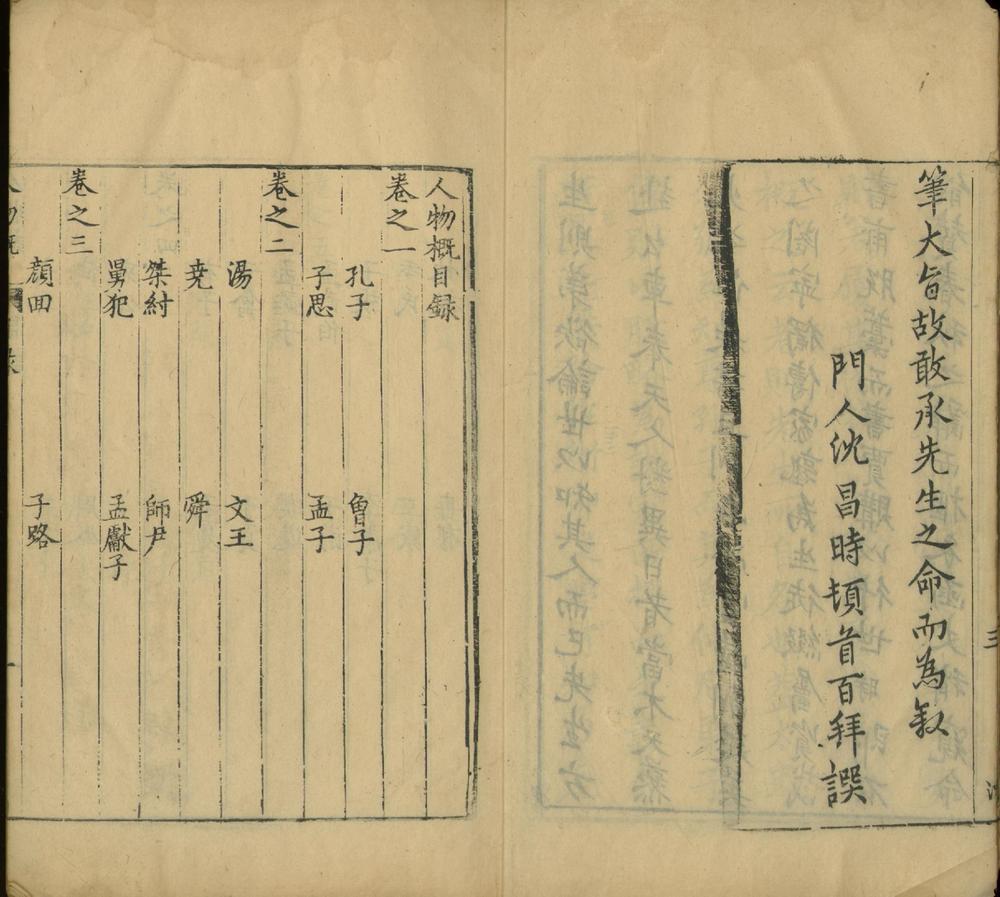 筆大旨故敢承先生之命而為叙
門人沈昌時頓首百拜譔
三
人物概目録
卷之一
孔子 曾子
子思 孟子
卷之二
湯 文王
堯 舜
桀紂 師尹
舅犯 孟獻子
卷之三
顔回 子路
一